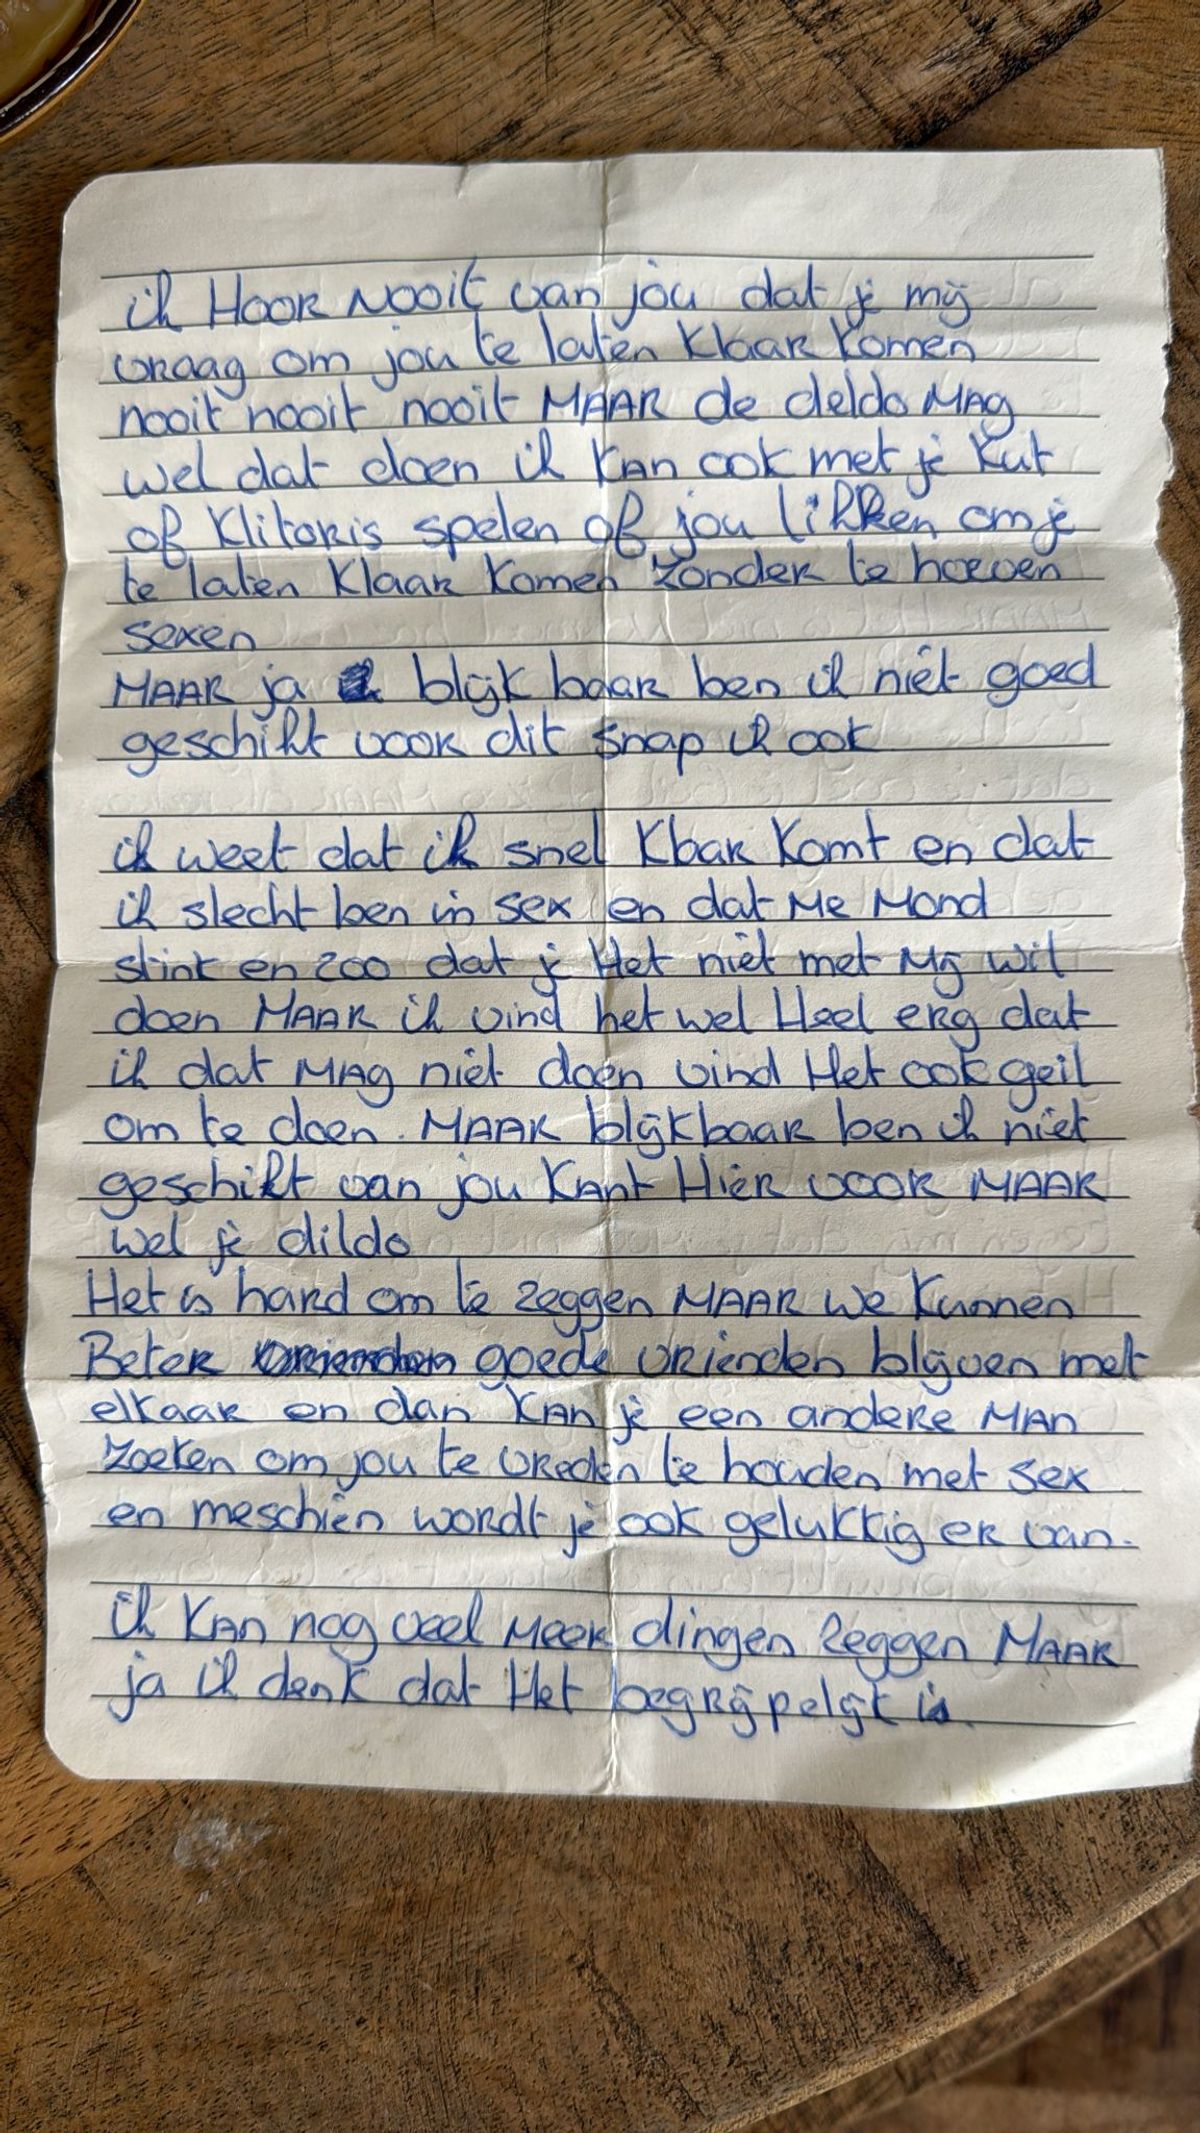 ik HOOR NOOIT van jou dat je mij
vraag om jou te laten klaar komen
nooit nooit nooit MAAR de deldo MAG
wel dat doen ik KAN ook met je kut
of klitoris spelen of jou likken om je
te laten klaar komen zonder te hoeven
sexen
MAAR ja blijk baar ben ik niet goed
geschikt voor dit snap ik ook
ik weet dat ik snel klaar komt en dat
ik slecht ben in sex en dat Me Mond
stink en zoo dat je Het niet met Mij wil
doen MAAR ik vind het wel Heel erg dat
ik dat MAg niet doen vind Het ook geil
om te doen. MAAR blijkbaar ben ik niet
geschikt van jou KAnt HiER VOOR MAAR
wel je dildo
Het is hard om te zeggen MAAR we kunnen
Beter goede vrienden blijven met
elkaar en dan KAn je een andere MAn
zoeken om jou te vreden te houden met sex
en meschien wordt je ook gelukkig er van.
ik KAn nog veel Meer dingen zeggen MAAR
ja ik denk dat Het begrijpelijk is.